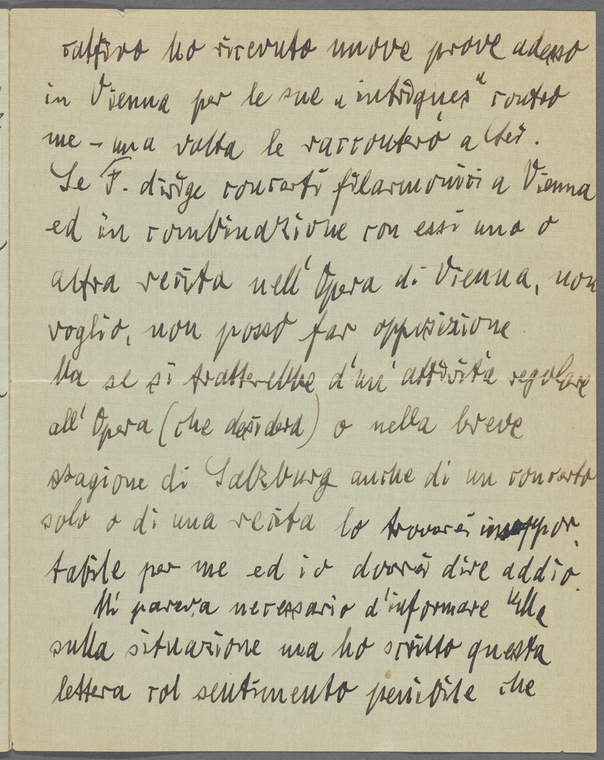 cattivo ho ricevuto nuove prove adesso
in Vienna per le sue "intrigues" contro
me – una volta le racconterò a Lei.
Se F. dirige concerti filarmonici a Vienna
ed in combinazione con essi una o
altra recita nell' Opera di Vienna, non
voglio, non posso far opposizione.
Ma se si tratterebbe d'un' attività regolare
all' Opera (che desidera) o nella breve
stagione di Salzburg anche di un concerto
solo o di una recita lo troverei insoppor
tabile per me ed io dovrei dire addio.
Mi pareva necessario d'informare Ella
sulla situazione ma ho scritto questa
lettera col sentimento penibile che